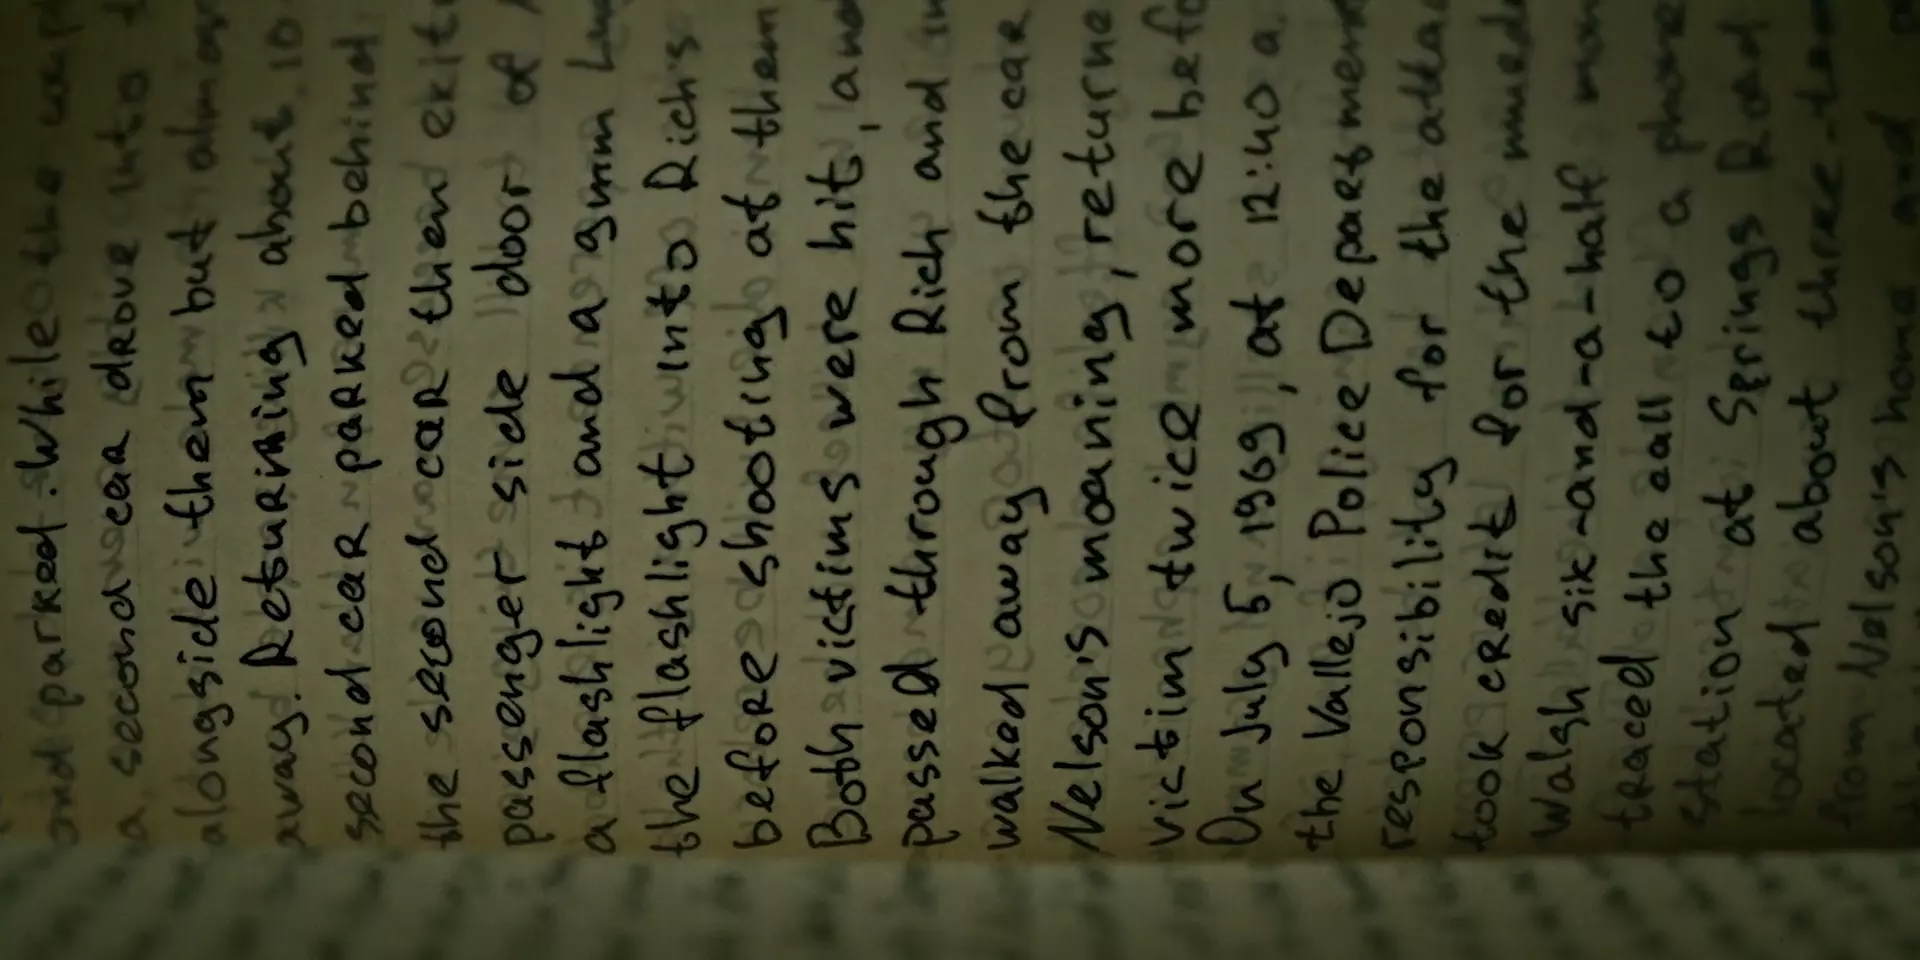 and parked. While the
a second car drove into
alongside them but
away. Returning about 10
second car parked behind
the second car then exit
passenger side door of
a flashlight and a gun
the flashlight into Rich's
before shooting at them
Both victims were hit, and
passed through Rich and in
walked away from the car
Nelson's moaning, returne
victim twice more befo
On July 5, 1969, at 12:40 a.
the Vallejo Police Department
responsibility for the atta
took credit for the
Walsh six-and-a-half
traced the call to a phone
station at Springs Road
located about three-ten
from Nelson's home and